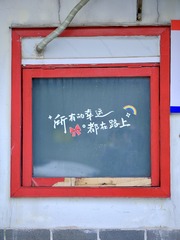 所有的幸运
都在路上